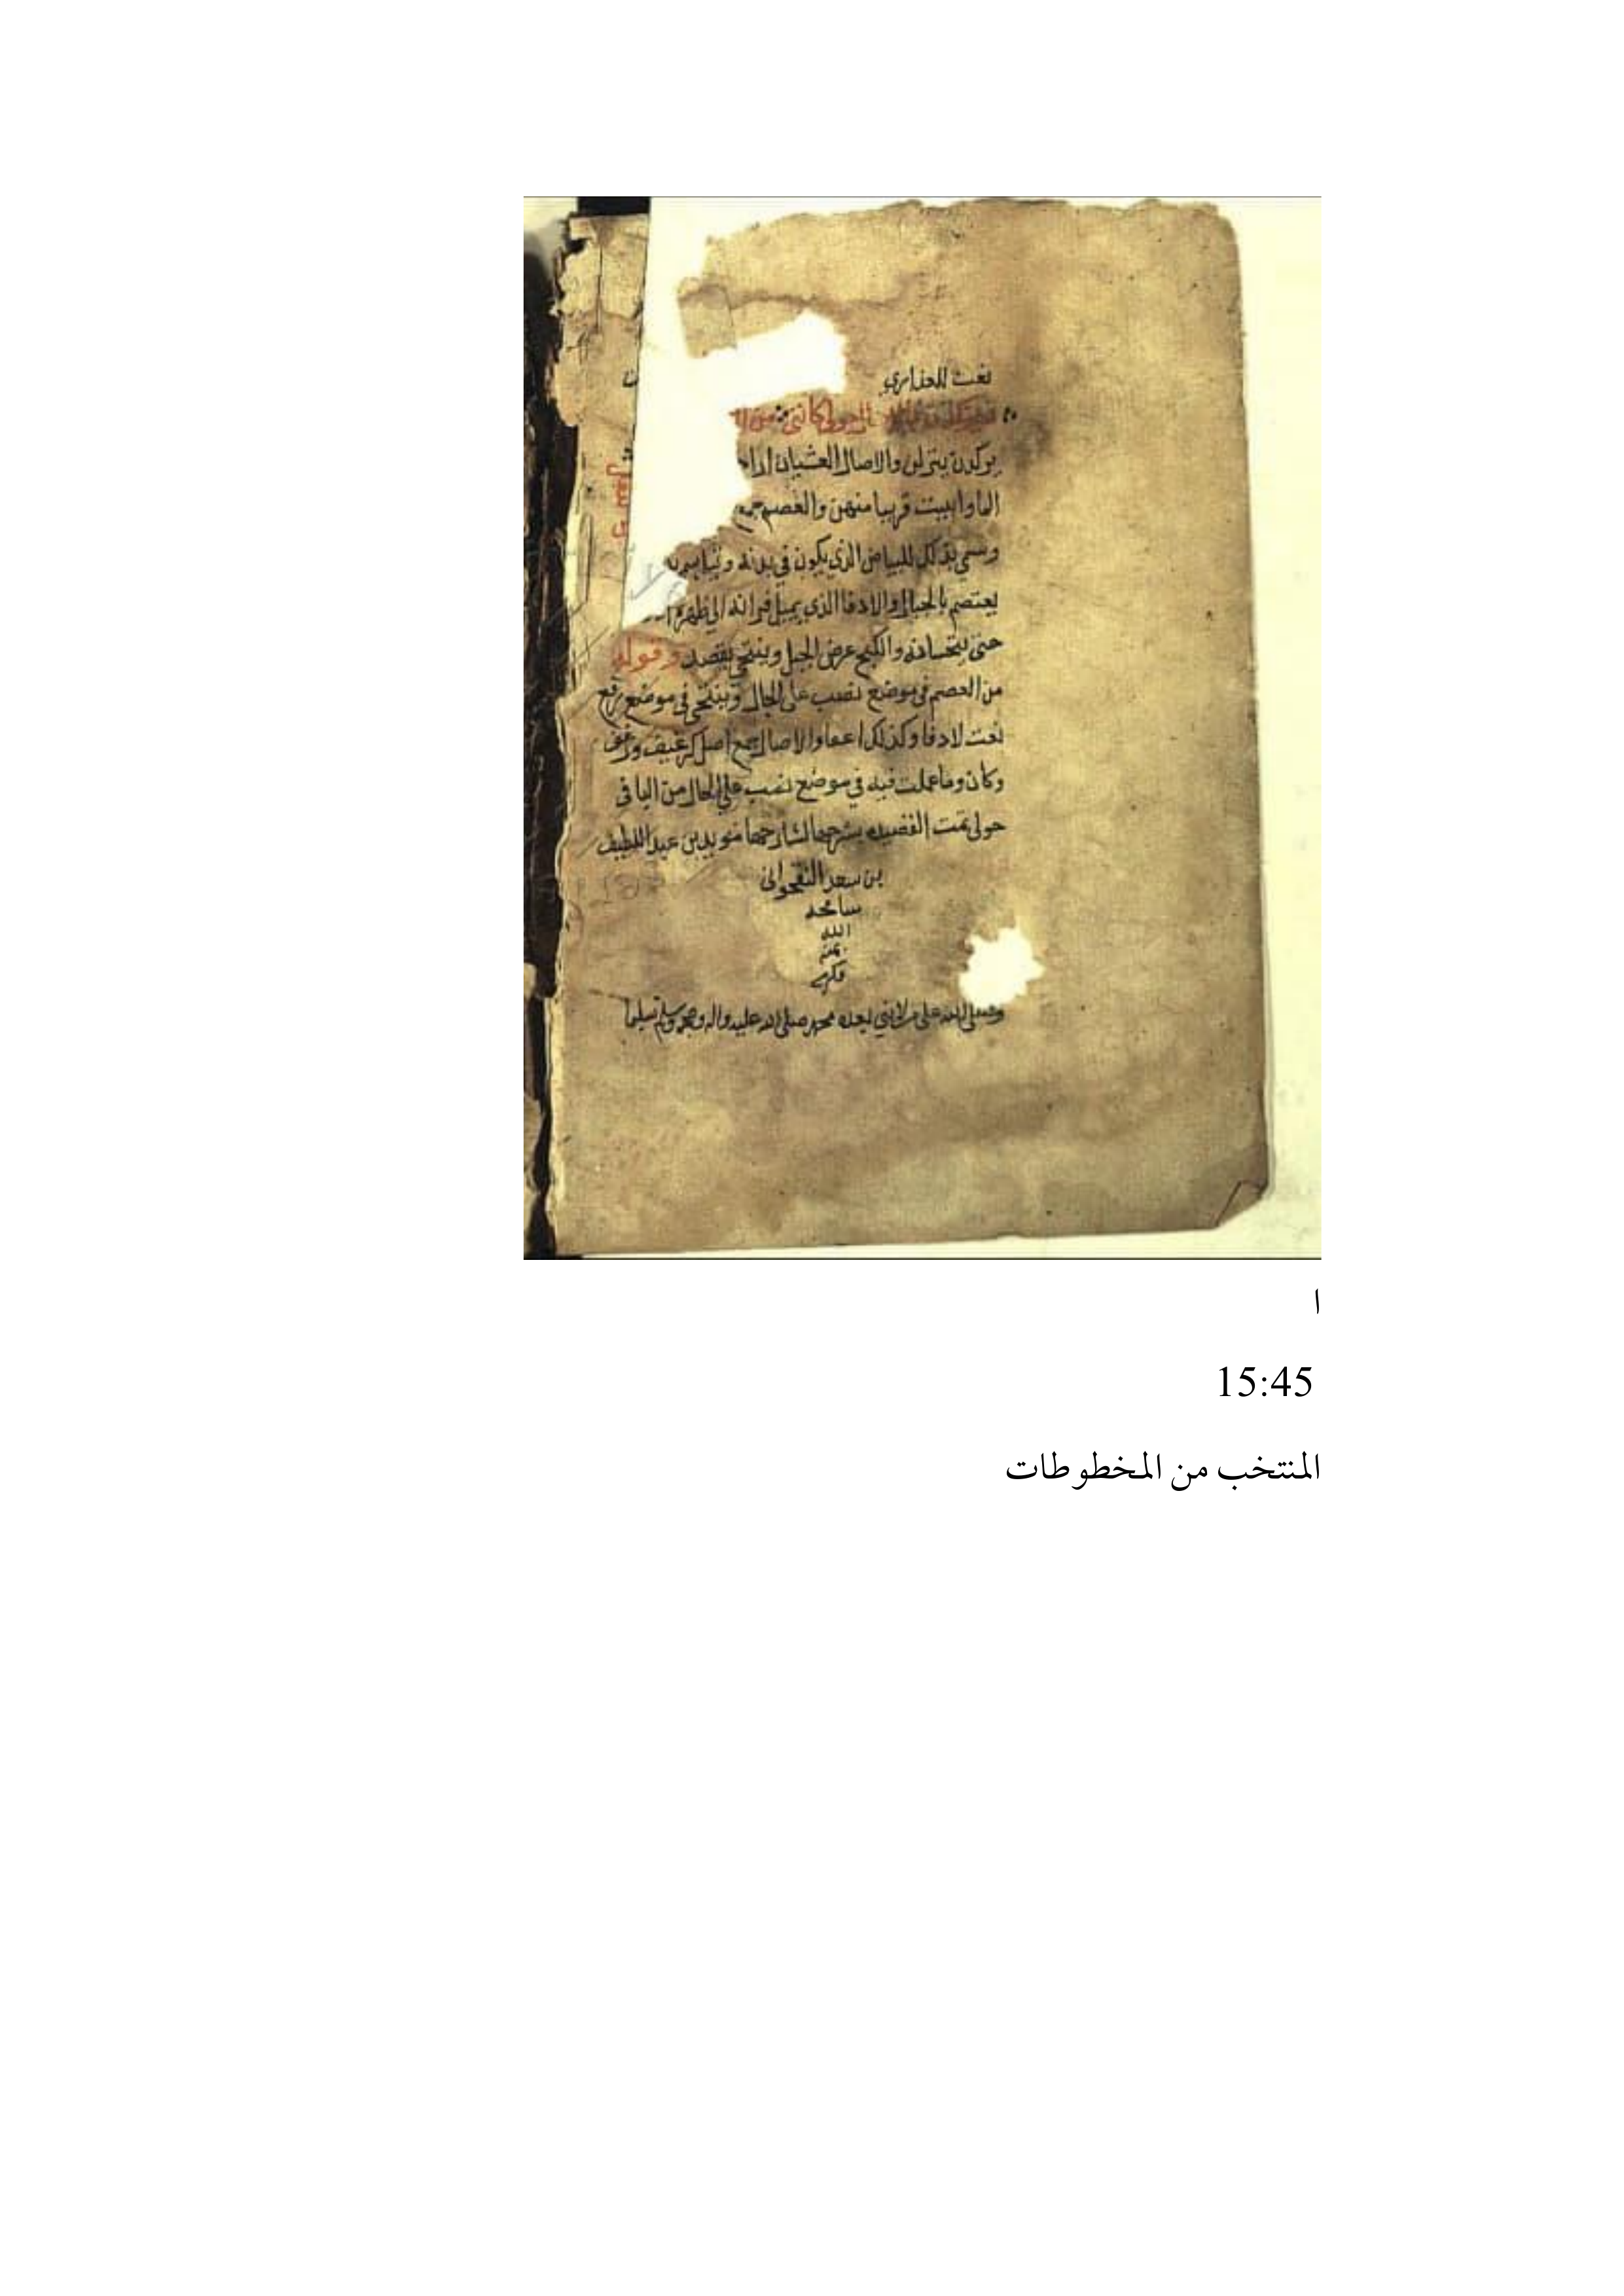 نعت للعذاري
حولي كانني من
يركدن ينزلن والاصال العشيان
الماوا ببيت قريبا منهن والعصم جمع
وسمي بذلك للبياض الذي يكون في بدنه
يعتصم بالجبال والادفا الذي يميل قرانه الي ظهره
حتي والكيح عرض الجبل وينتحي يقصد وقوله
من العصم في موضع نصب على الحال وينتحي في موضع رفع
نعت لادفا وكذلك اعقل والاصال جمع اصل كرغيف ورغف
وكان وما عملت فيه في موضع نصب علي الحال من اليا في
حولي تمت القصيده بشرحها لشارحها مويد بن عبد اللطيف
بن سعد النقجواني
سامحه
الله
بمنه
وكرمه
وصلى الله على من لا نبي بعده محمد صلى الله عليه واله وصحبه وسلم تسليما
ا
15:45
المنتخب من المخطوطات